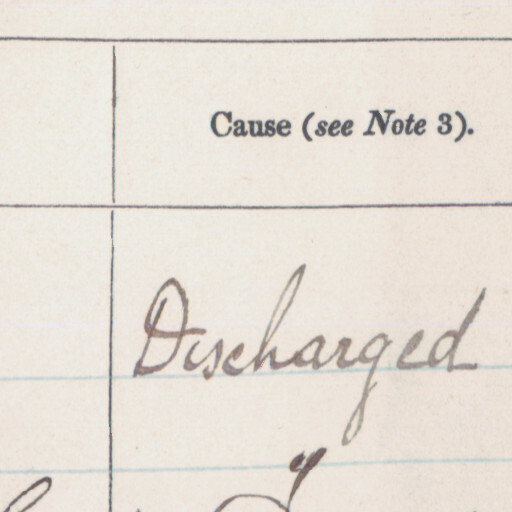 Cause (see Note 3).
Discharged